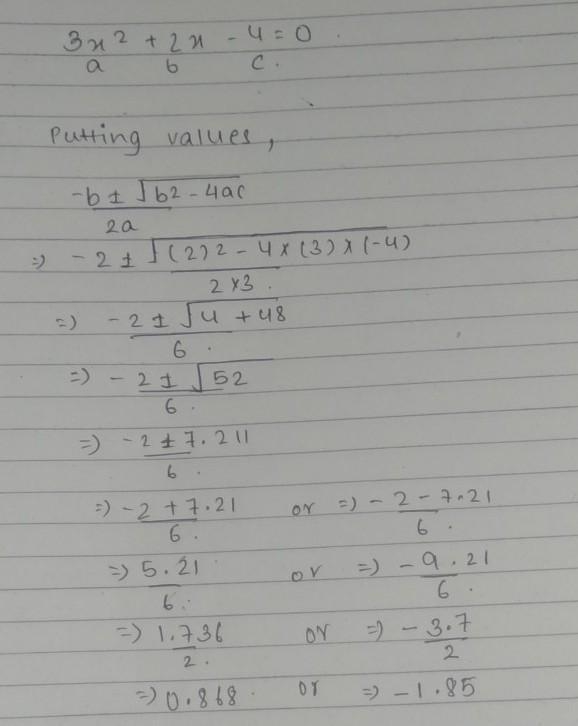 3x² + 2x - 4 = 0.
a b c.
Putting values,
-b ± √b2 - 4ac
2a
=> -2 ± √(2)2 - 4 x (3) x (-4)
2 x 3.
=> -2 ± √4 + 48
6.
=> -2 ± √52
6.
=> -2 ± 7.211
6.
=> -2 + 7.21 or => -2 - 7.21
6. 6.
=> 5.21 or => -9.21
6. 6.
=> 1.736 or => -3.7
2. 2
=> 0.868. or => -1.85